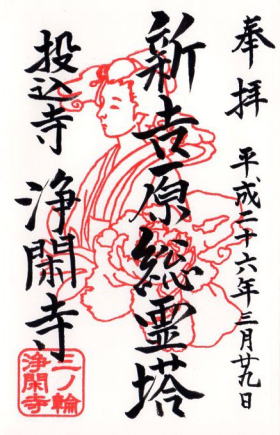 奉拝
平成二十六年三月廿九日
新吉原総霊塔
投込寺
浄閑寺
三ノ輪
浄閑寺